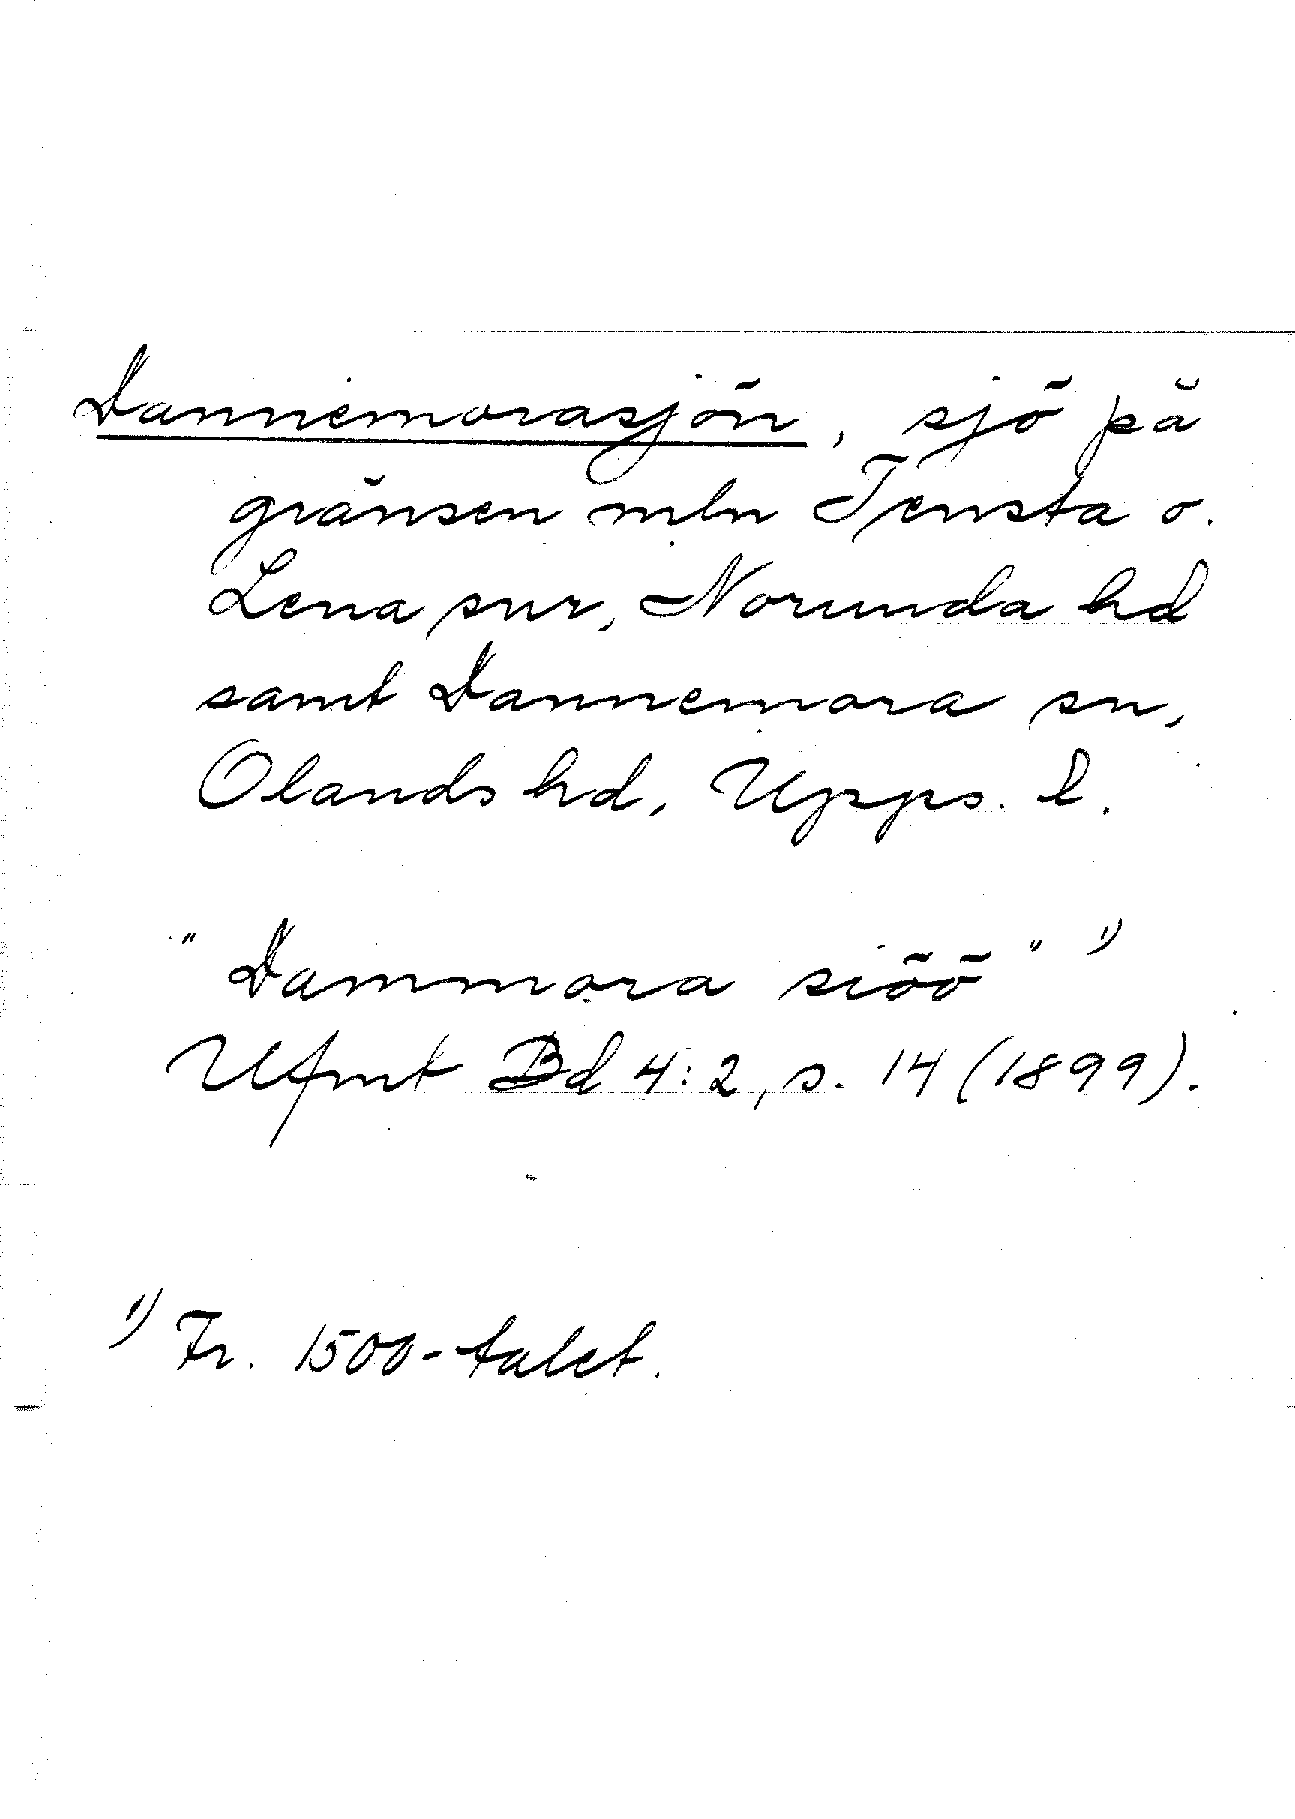 Dannemorasjön, sjö på
gränsen mln Tensta o.
Lena snr, Norunda hd
samt Dannemora sn,
Olands hd, Upps. l.
"Dammora siöö" 1)
Ufmt Bd 4:2, s. 14 (1899).
1) Fr. 1500-talet.